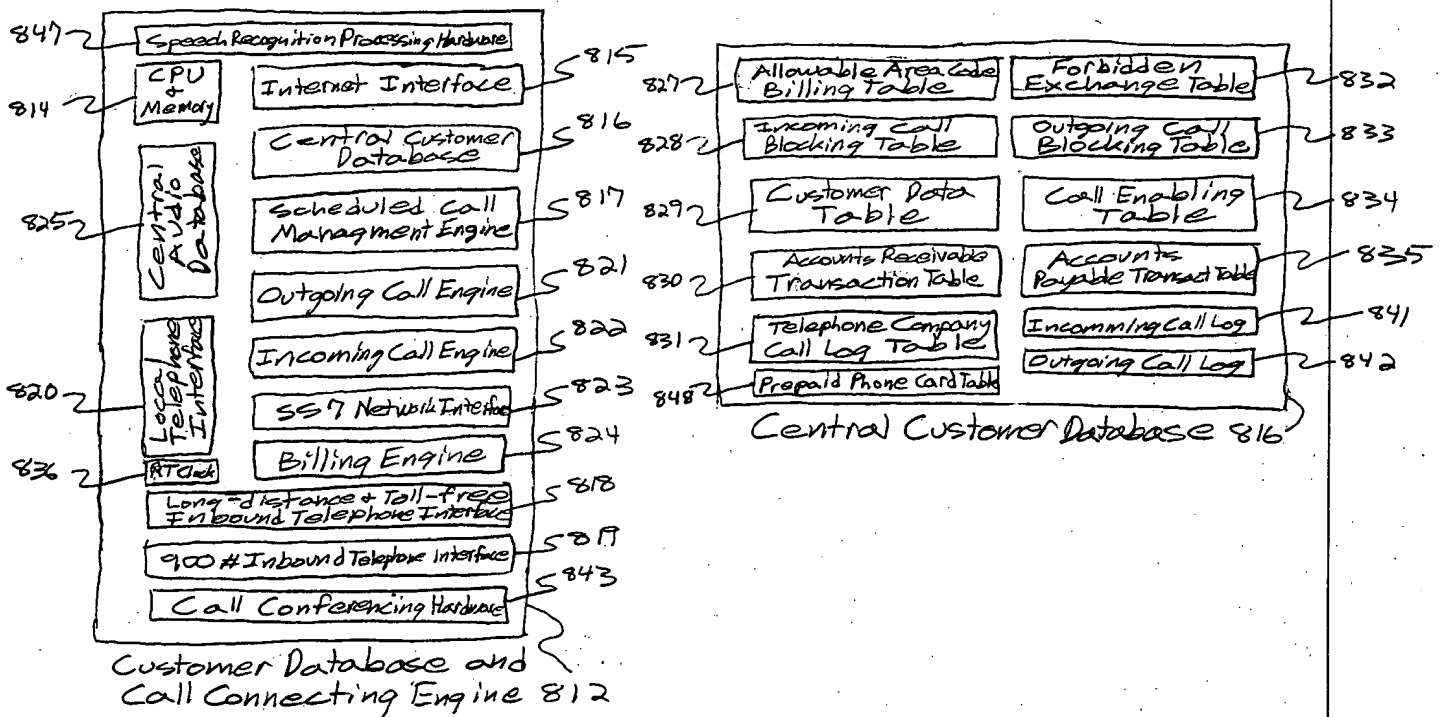 847
Speech Recognition Processing Hardware
814
CPU
&
Memory
Internet Interface
815
Central Customer
Database
816
825
Central
Audio
Database
Scheduled Call
Managment Engine
817
Outgoing Call Engine
821
820
Local
Telephone
Interface
Incoming Call Engine
822
SS7 Network Interface
823
Billing Engine
824
836
RT Clock
Long-distance & Toll-free
Inbound Telephone Interface
818
900 # Inbound Telephone Interface
819
Call Conferencing Hardware
843
Customer Database and
Call Connecting Engine 812
827
Allowable Area Code
Billing Table
Forbidden
Exchange Table
832
828
Incoming Call
Blocking Table
Outgoing Call
Blocking Table
833
829
Customer Data
Table
Call Enabling
Table
834
830
Accounts Receivable
Transaction Table
Accounts
Payable Transact Table
835
831
Telephone Company
Call Log Table
Incomming Call Log
841
Outgoing Call Log
842
848
Prepaid Phone Card Table
Central Customer Database 816